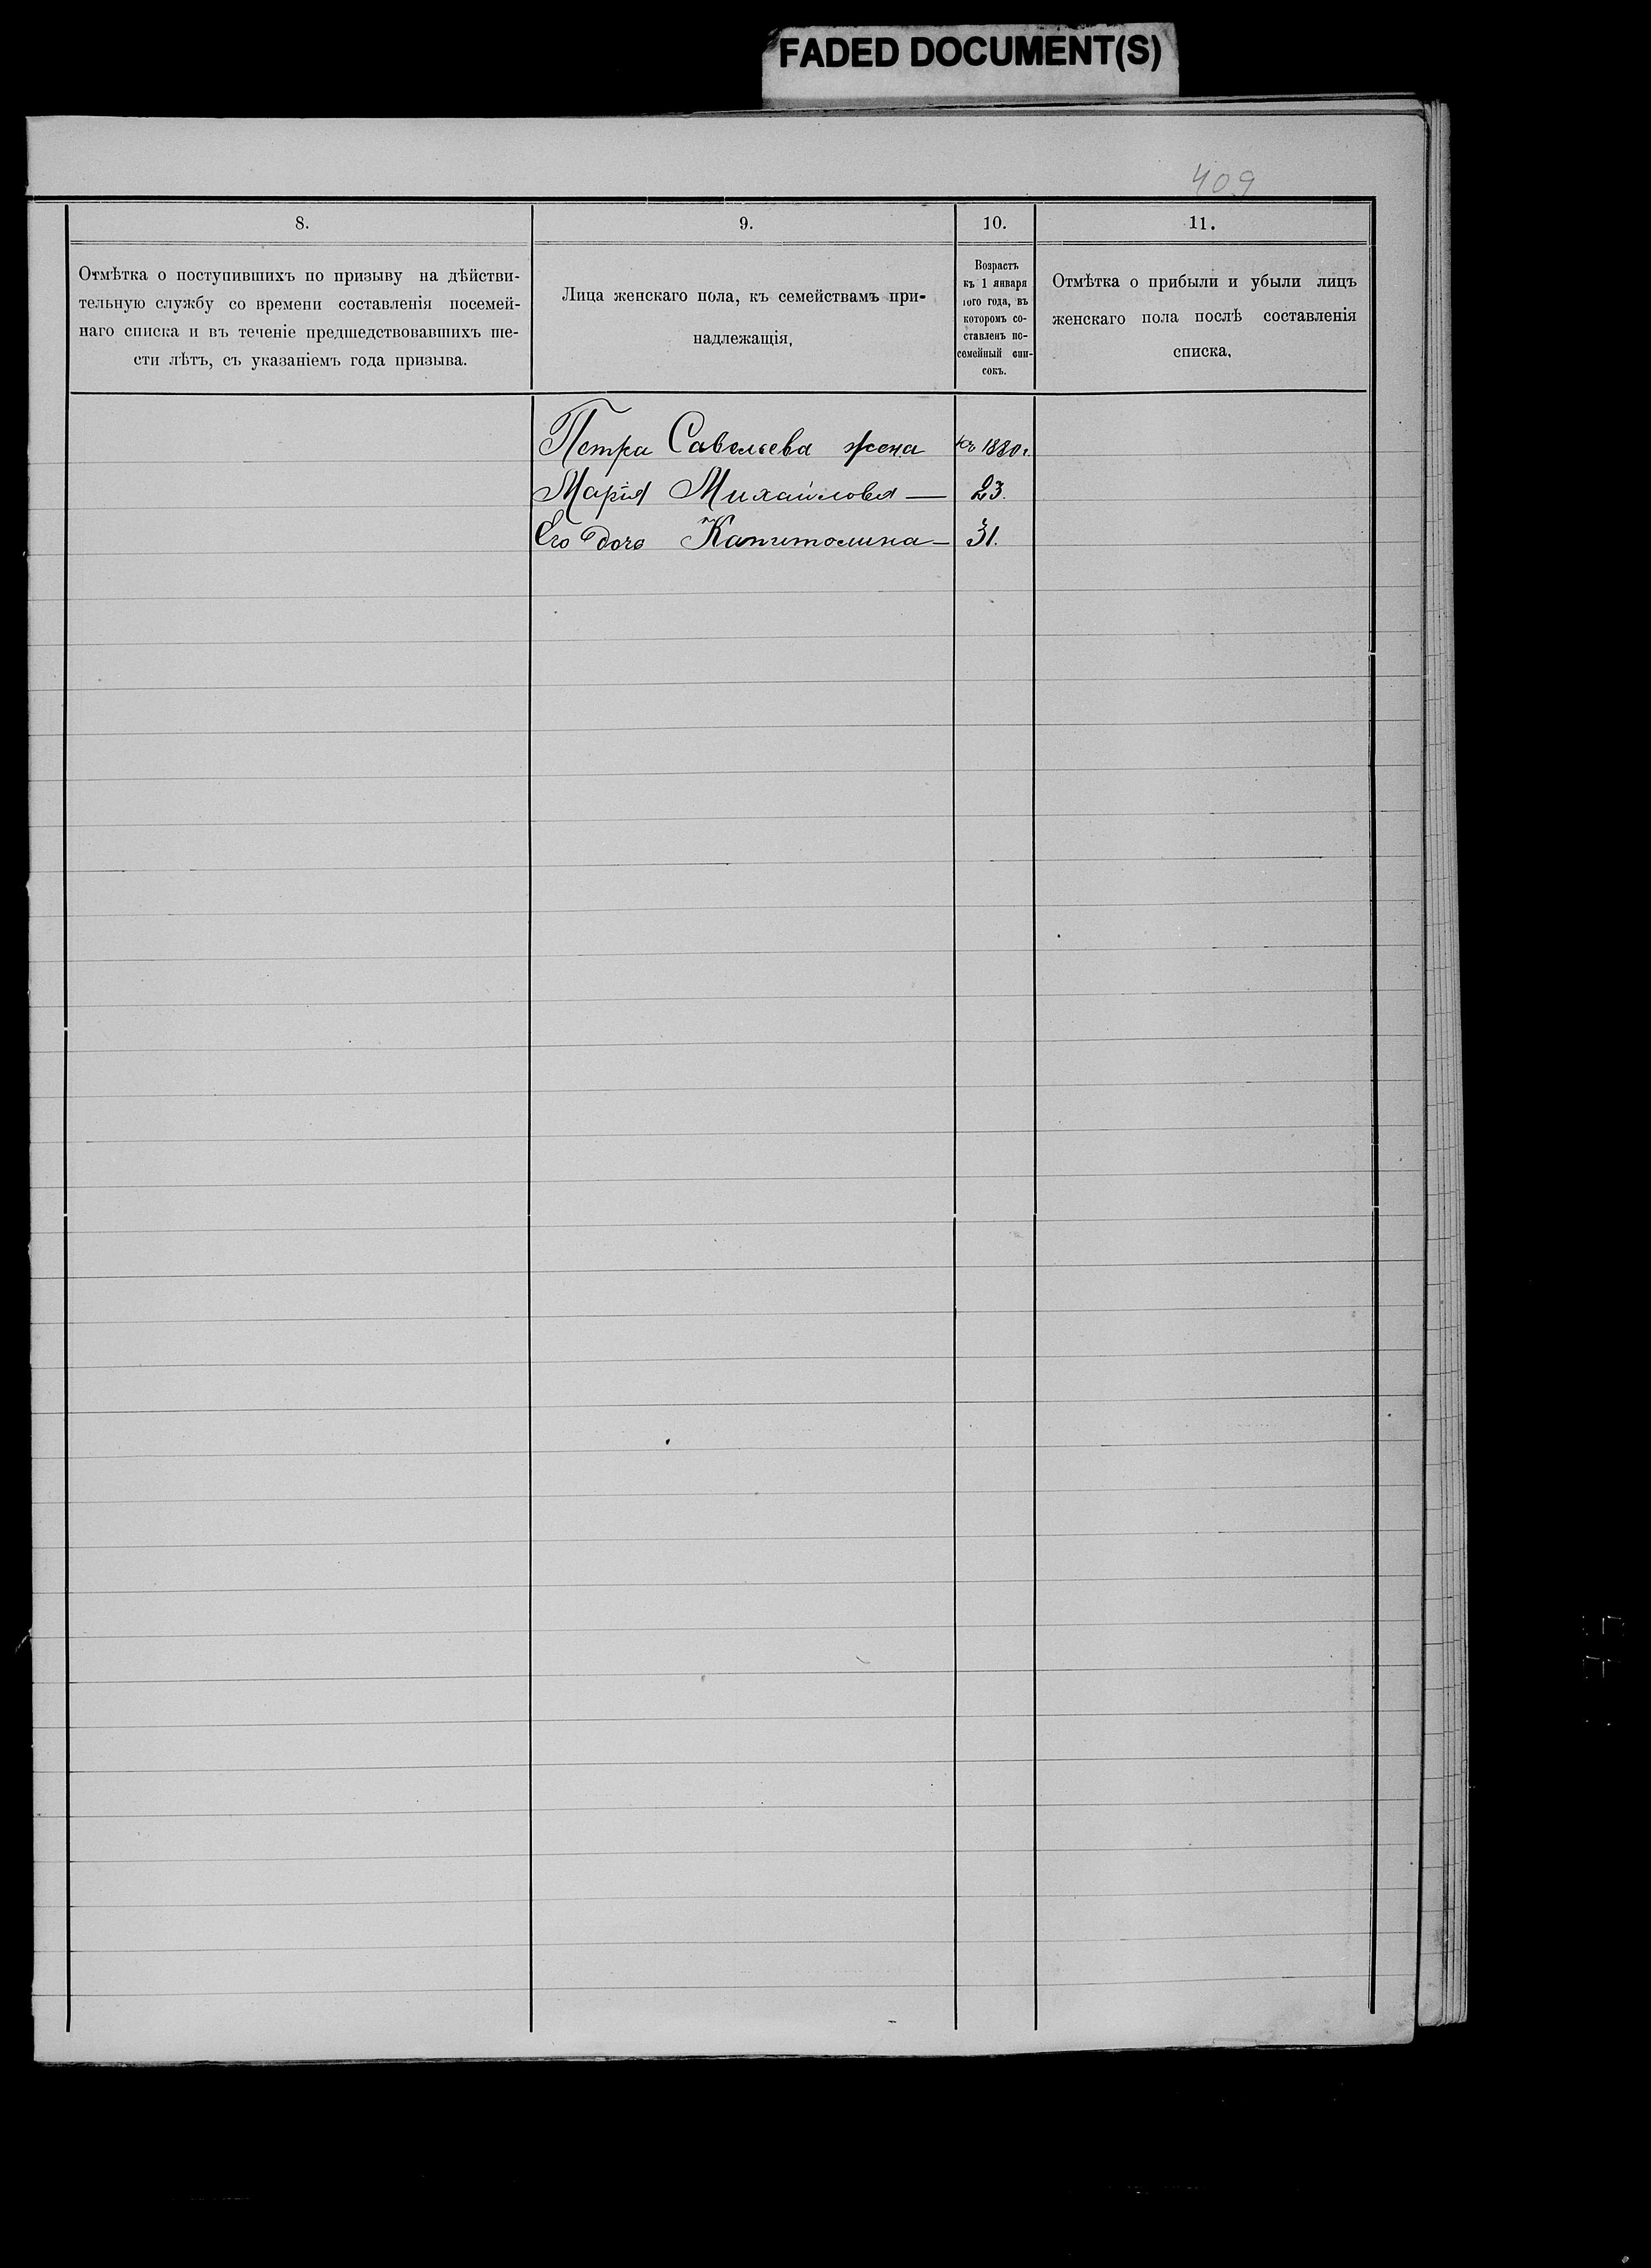 FADED DOCUMENT(S)
409
8.
9.
10.
11.
Отмѣтка о поступившихъ по призыву на дѣйстви-
тельную службу со времени составленія посемей-
наго списка и въ теченіе предшедствовавшихъ ше-
сти лѣтъ, съ указаніемъ года призыва.
Лица женскаго пола, къ семействамъ при-
надлежащія,
Возрастъ
къ 1 января
того года, въ
которомъ со-
ставленъ по-
семейный спи-
сокъ.
Отмѣтка о прибыли и убыли лицъ
женскаго пола послѣ составленія
списка,
Петра Савельева жена къ 1880 г.
Марія Михайлова — 23.
Его дочь Капитолина — 31.